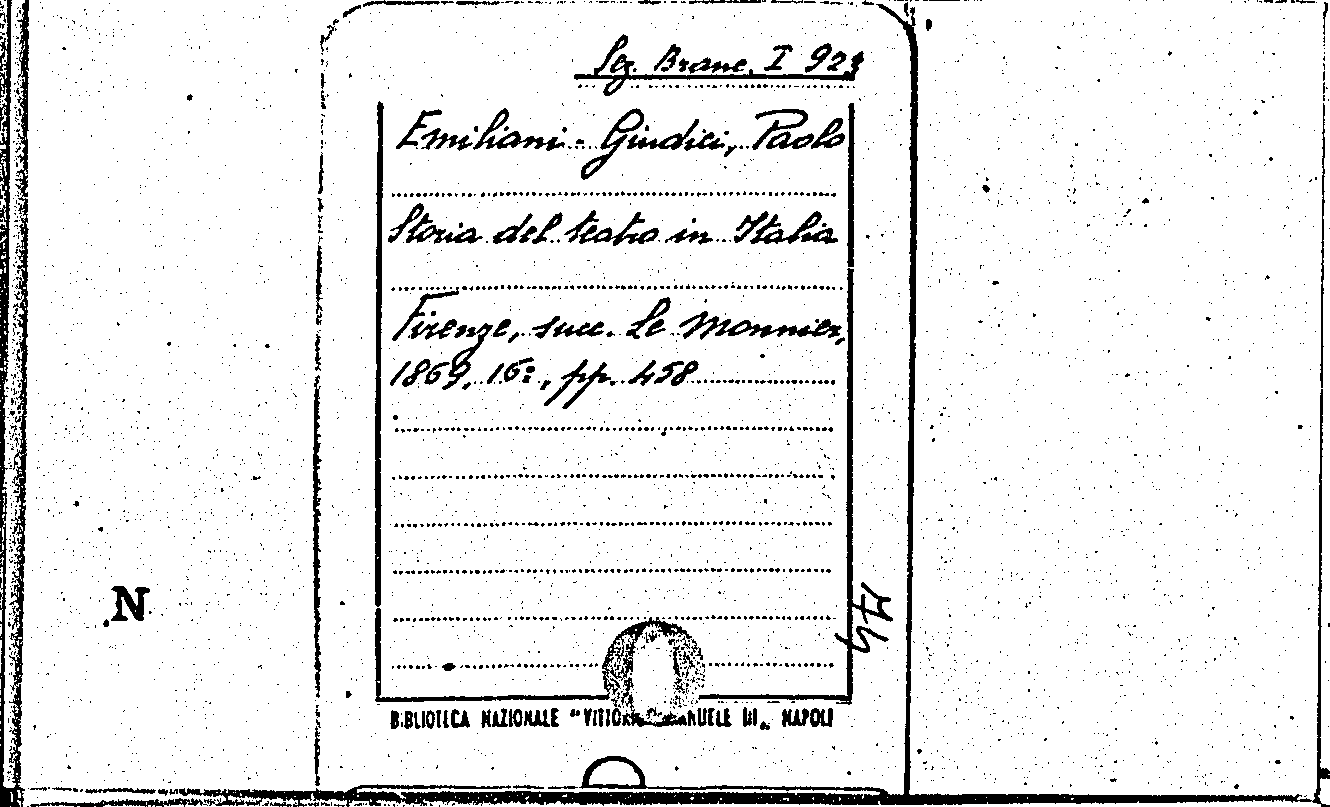 Sez. Branc. I 923
Emiliani-Giudici, Paolo
Storia del teatro in Italia
Firenze, succ. Le Monnier,
1869, 16º, pp. 458
N
BIBLIOTECA NAZIONALE "VITTORIO EMANUELE III„ NAPOLI